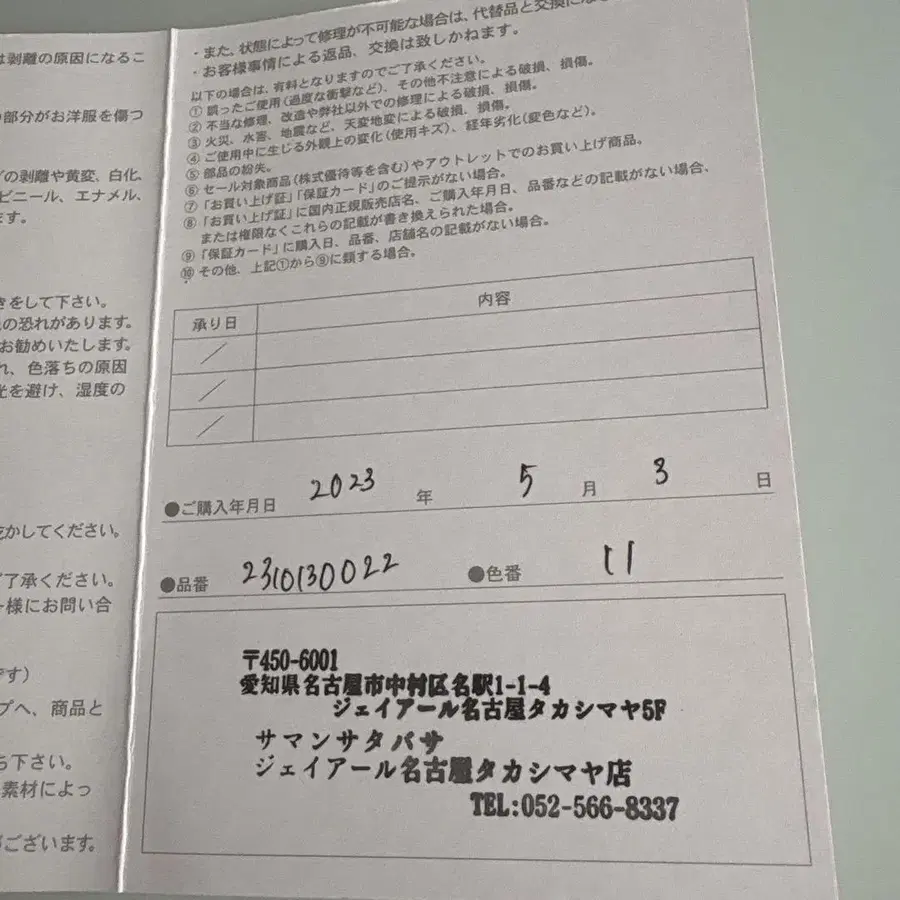 は剥離の原因になるこ
部分がお洋服を傷つ
の剥離や黄変、白化、
ビニール、エナメル、
ます。
きをして下さい。
の恐れがあります。
お勧めいたします。
れ、色落ちの原因
光を避け、湿度の
乾かしてください。
ご了承ください。
様にお問い合
です)
プへ、商品と
ち下さい。
素材によっ
がございます。
・また、状態によって修理が不可能な場合は、代替品と交換に
・お客様事情による返品、交換は致しかねます。
以下の場合は、有料となりますのでご了承ください。
① 誤ったご使用(過度な衝撃など)、その他不注意による破損、損傷。
② 不当な修理、改造や弊社以外での修理による破損、損傷。
③ 火災、水害、地震など、天変地変による破損、損傷。
④ ご使用中に生じる外観上の変化(使用キズ)、経年劣化(変色など)。
⑤ 部品の紛失。
⑥ セール対象商品(株式優待等を含む)やアウトレットでのお買い上げ商品。
⑦ 「お買い上げ証」「保証カード」のご提示がない場合。
⑧ 「お買い上げ証」に国内正規販売店名、ご購入年月日、品番などの記載がない場合、
または権限なくこれらの記載が書き換えられた場合。
⑨ 「保証カード」に購入日、品番、店舗名の記載がない場合。
⑩ その他、上記①から⑨に類する場合。
承り日 内容
／
／
／
●ご購入年月日 2023 年 5 月 3 日
●品番 2310130022 ●色番 11
〒450-6001
愛知県名古屋市中村区名駅1-1-4
ジェイアール名古屋タカシマヤ5F
サマンサタバサ
ジェイアール名古屋タカシマヤ店
TEL:052-566-8337